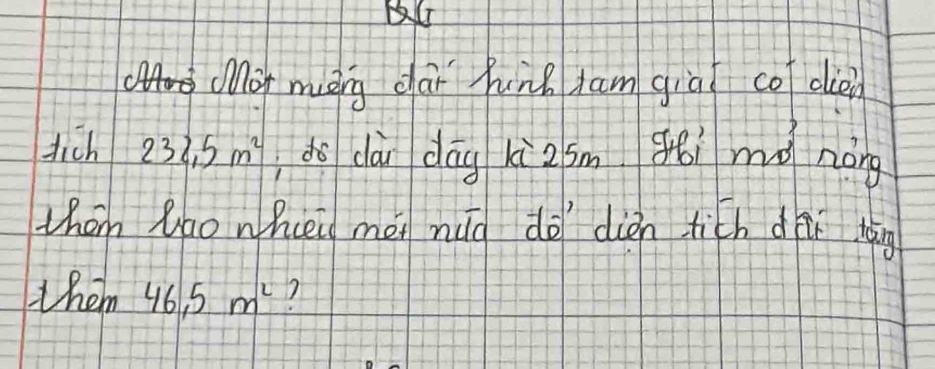 BG
Một miếng đất hình tam giác có diện
tích 232,5 m², độ dài đáy là 25m. Hỏi mở rộng
thêm bao nhiêu mét nữa để diện tích đất tăng
thêm 46,5 m²?